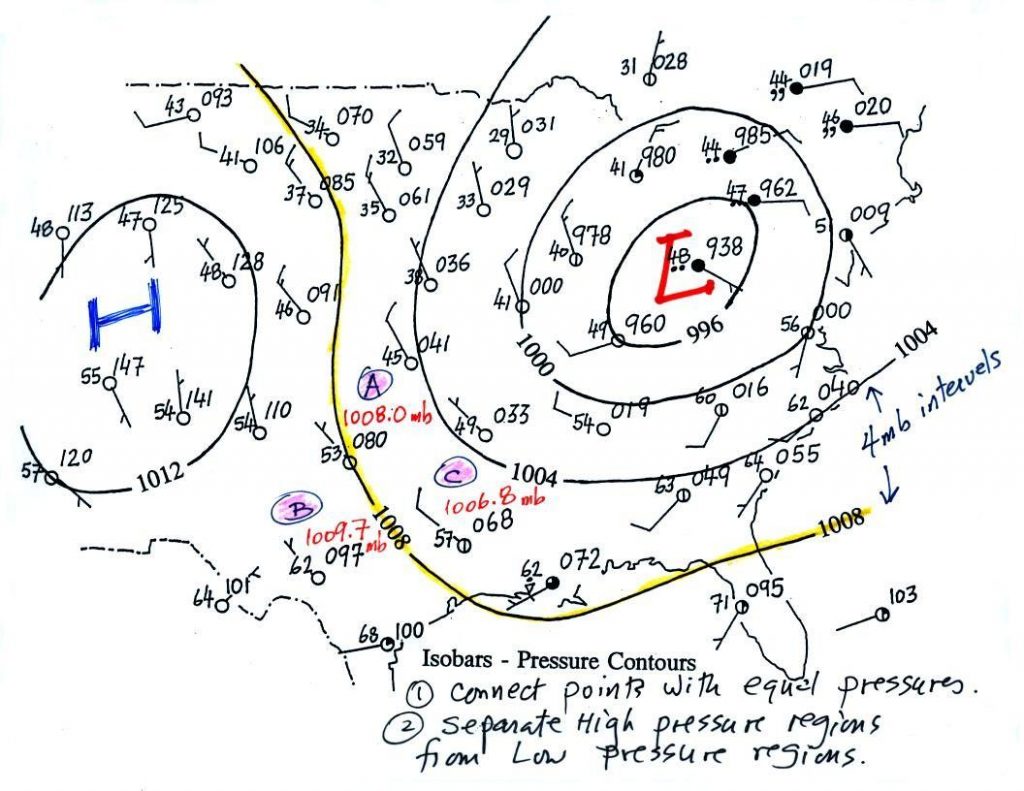 31 028
44 019
,,
43 093
34 070
46 020
,,
29 031
32 059
41 106
44 985
41 980
37 085
35 061
33 029
47 962
48 113
47 125
5 009
40 978
48 938
48 128
38 036
46 091
41 000
H
L
49 960
996
56 000
1000
1004
45 041
55 147
A
1008.0 mb
54 141
54 110
49 033
54 019
60 016
62 040
4 mb intervels
53 080
57 120
1012
C
1004
1006.8 mb
63 049
64 055
B
1009.7 mb
1008
1008
57 068
62 097
62 072
64 101
71 095
103
68 100
Isobars - Pressure Contours
① Connect points with equal pressures.
② Separate High pressure regions
from Low pressure regions.